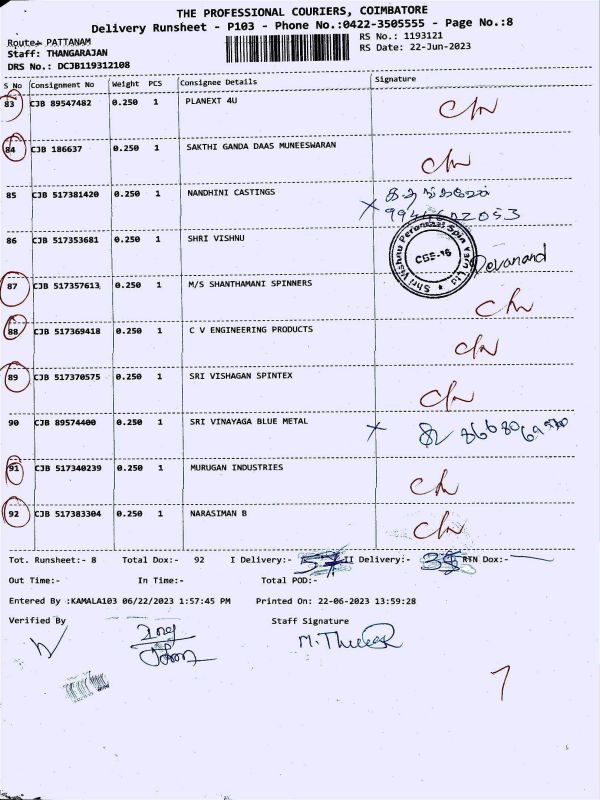 THE PROFESSIONAL COURIERS, COIMBATORE
Delivery Runsheet - P103 - Phone No.:0422-3505555 - Page No.:8
Route:- PATTANAM RS No.: 1193121
Staff: THANGARAJAN RS Date: 22-Jun-2023
DRS No.: DCJB119312108
S No Consignment No Weight PCS Consignee Details Signature
83 CJB 89547482 0.250 1 PLANEXT 4U
84 CJB 186637 0.250 1 SAKTHI GANDA DAAS MUNEESWARAN
85 CJB 517381420 0.250 1 NANDHINI CASTINGS
86 CJB 517353681 0.250 1 SHRI VISHNU CBE-16 Devanand
87 CJB 517357613 0.250 1 M/S SHANTHAMANI SPINNERS
88 CJB 517369418 0.250 1 C V ENGINEERING PRODUCTS
89 CJB 517370575 0.250 1 SRI VISHAGAN SPINTEX
90 CJB 89574400 0.250 1 SRI VINAYAGA BLUE METAL
91 CJB 517340239 0.250 1 MURUGAN INDUSTRIES
92 CJB 517383304 0.250 1 NARASIMAN B
Tot. Runsheet:- 8 Total Dox:- 92 I Delivery:- 57 II Delivery:- RTN Dox:-
Out Time:- In Time:- Total POD:-
Entered By :KAMALA103 06/22/2023 1:57:45 PM Printed On: 22-06-2023 13:59:28
Verified By Staff Signature
7